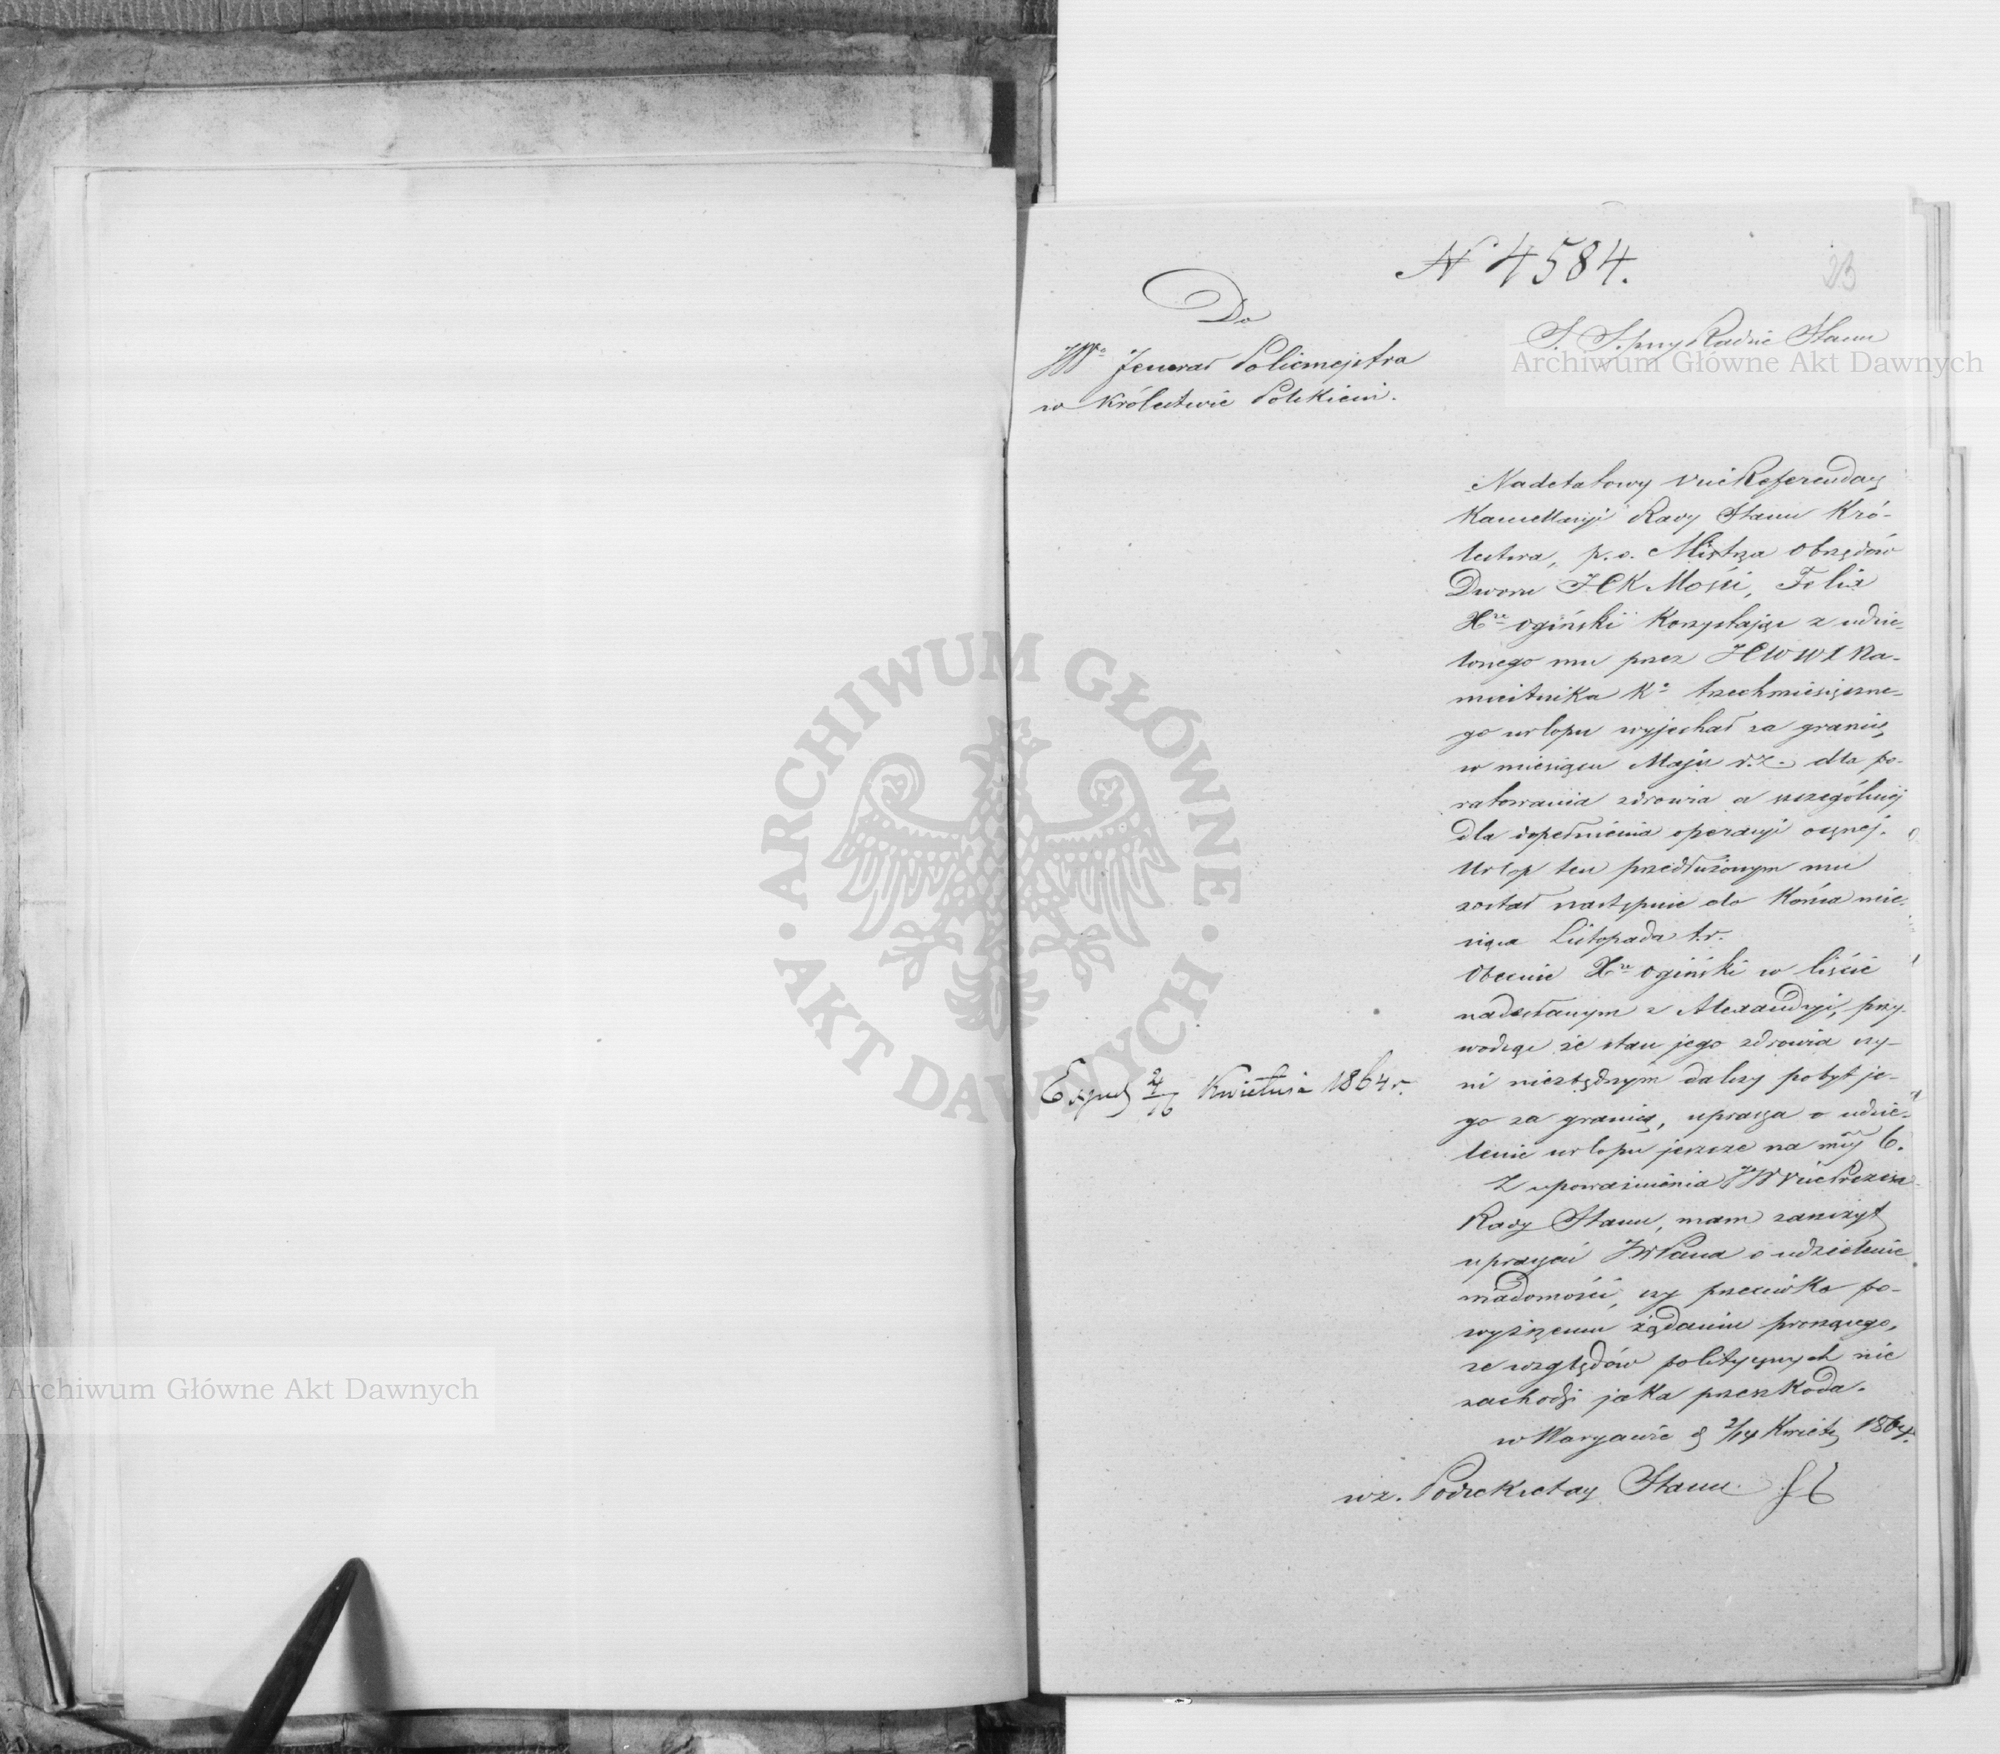 N 4584.
23
Do
JWo Jenerał Policmejstra
w Królestwie Polskiem.
S. S. przy Radzie Stanu
Archiwum Główne Akt Dawnych
Nadetatowy ViceReferendarz
Kancellaryi Rady Stanu Kró-
lestwa, p.o. Mistrza Obrzędów
Dworu JCKMości, Felix
Xże Ogiński korzystając z udzie-
lonego mu przez JCWWX Na-
miestnika Ko trzechmiesięczne-
go urlopu wyjechał za granicę
w miesiącu Maju r.z. dla po-
ratowania zdrowia a szczególniej
dla dopełnienia operacyi ocznej.
Urlop ten przedłużonym mu
został następnie do końca mie-
siąca Listopada t.r.
Obecnie Xże Ogiński w liście
nadesłanym z Alexandryi, przy-
wodząc że stan jego zdrowia czy-
ni niezbędnym dalszy pobyt je-
go za granicą, uprasza o udzie-
lenie urlopu jeszcze na mcy 6.
Z upoważnienia JW VicePrezesa
Rady Stanu, mam zaszczyt
upraszać JWPana o udzielenie
wiadomości, czy przeciwko po-
wyższemu żądaniu proszącego,
ze względów politycznych nie
zachodzi jaka przeszkoda.
w Warszawie d 2/14 Kwiet. 1864.
wz. Podsekretarz Stanu
Exped 4/16 Kwietnia 1864 r.
ARCHIWUM GŁÓWNE · AKT DAWNYCH ·
Archiwum Główne Akt Dawnych